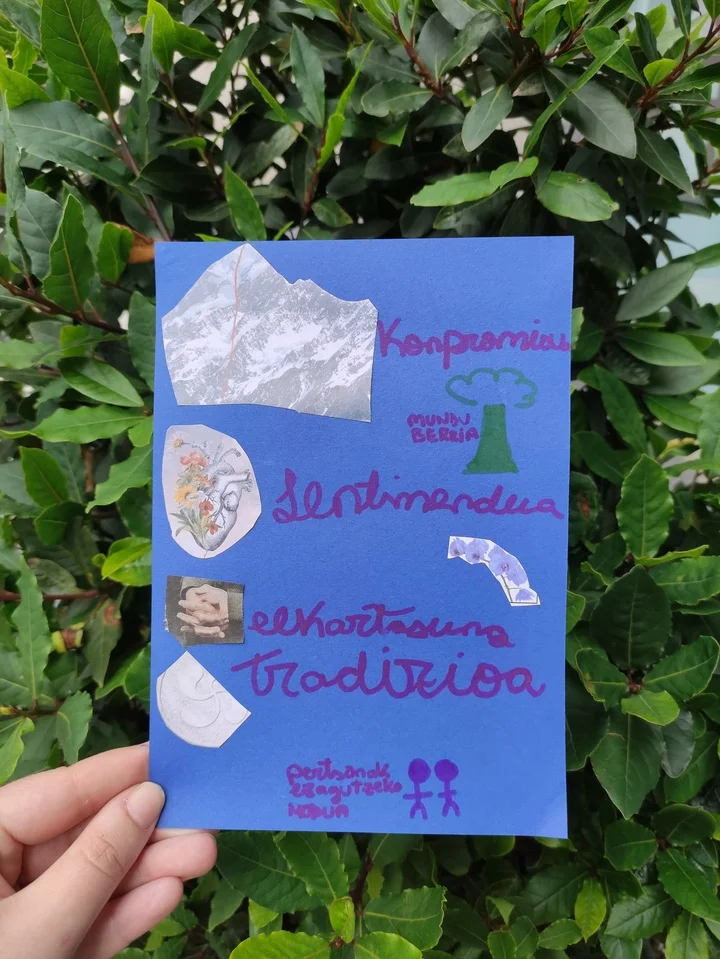 Konpromisu
MUNDU
BERRIA
Sentimendua
elkartasuna
tradizioa
pertsonak
ezagutzeko
MODUA